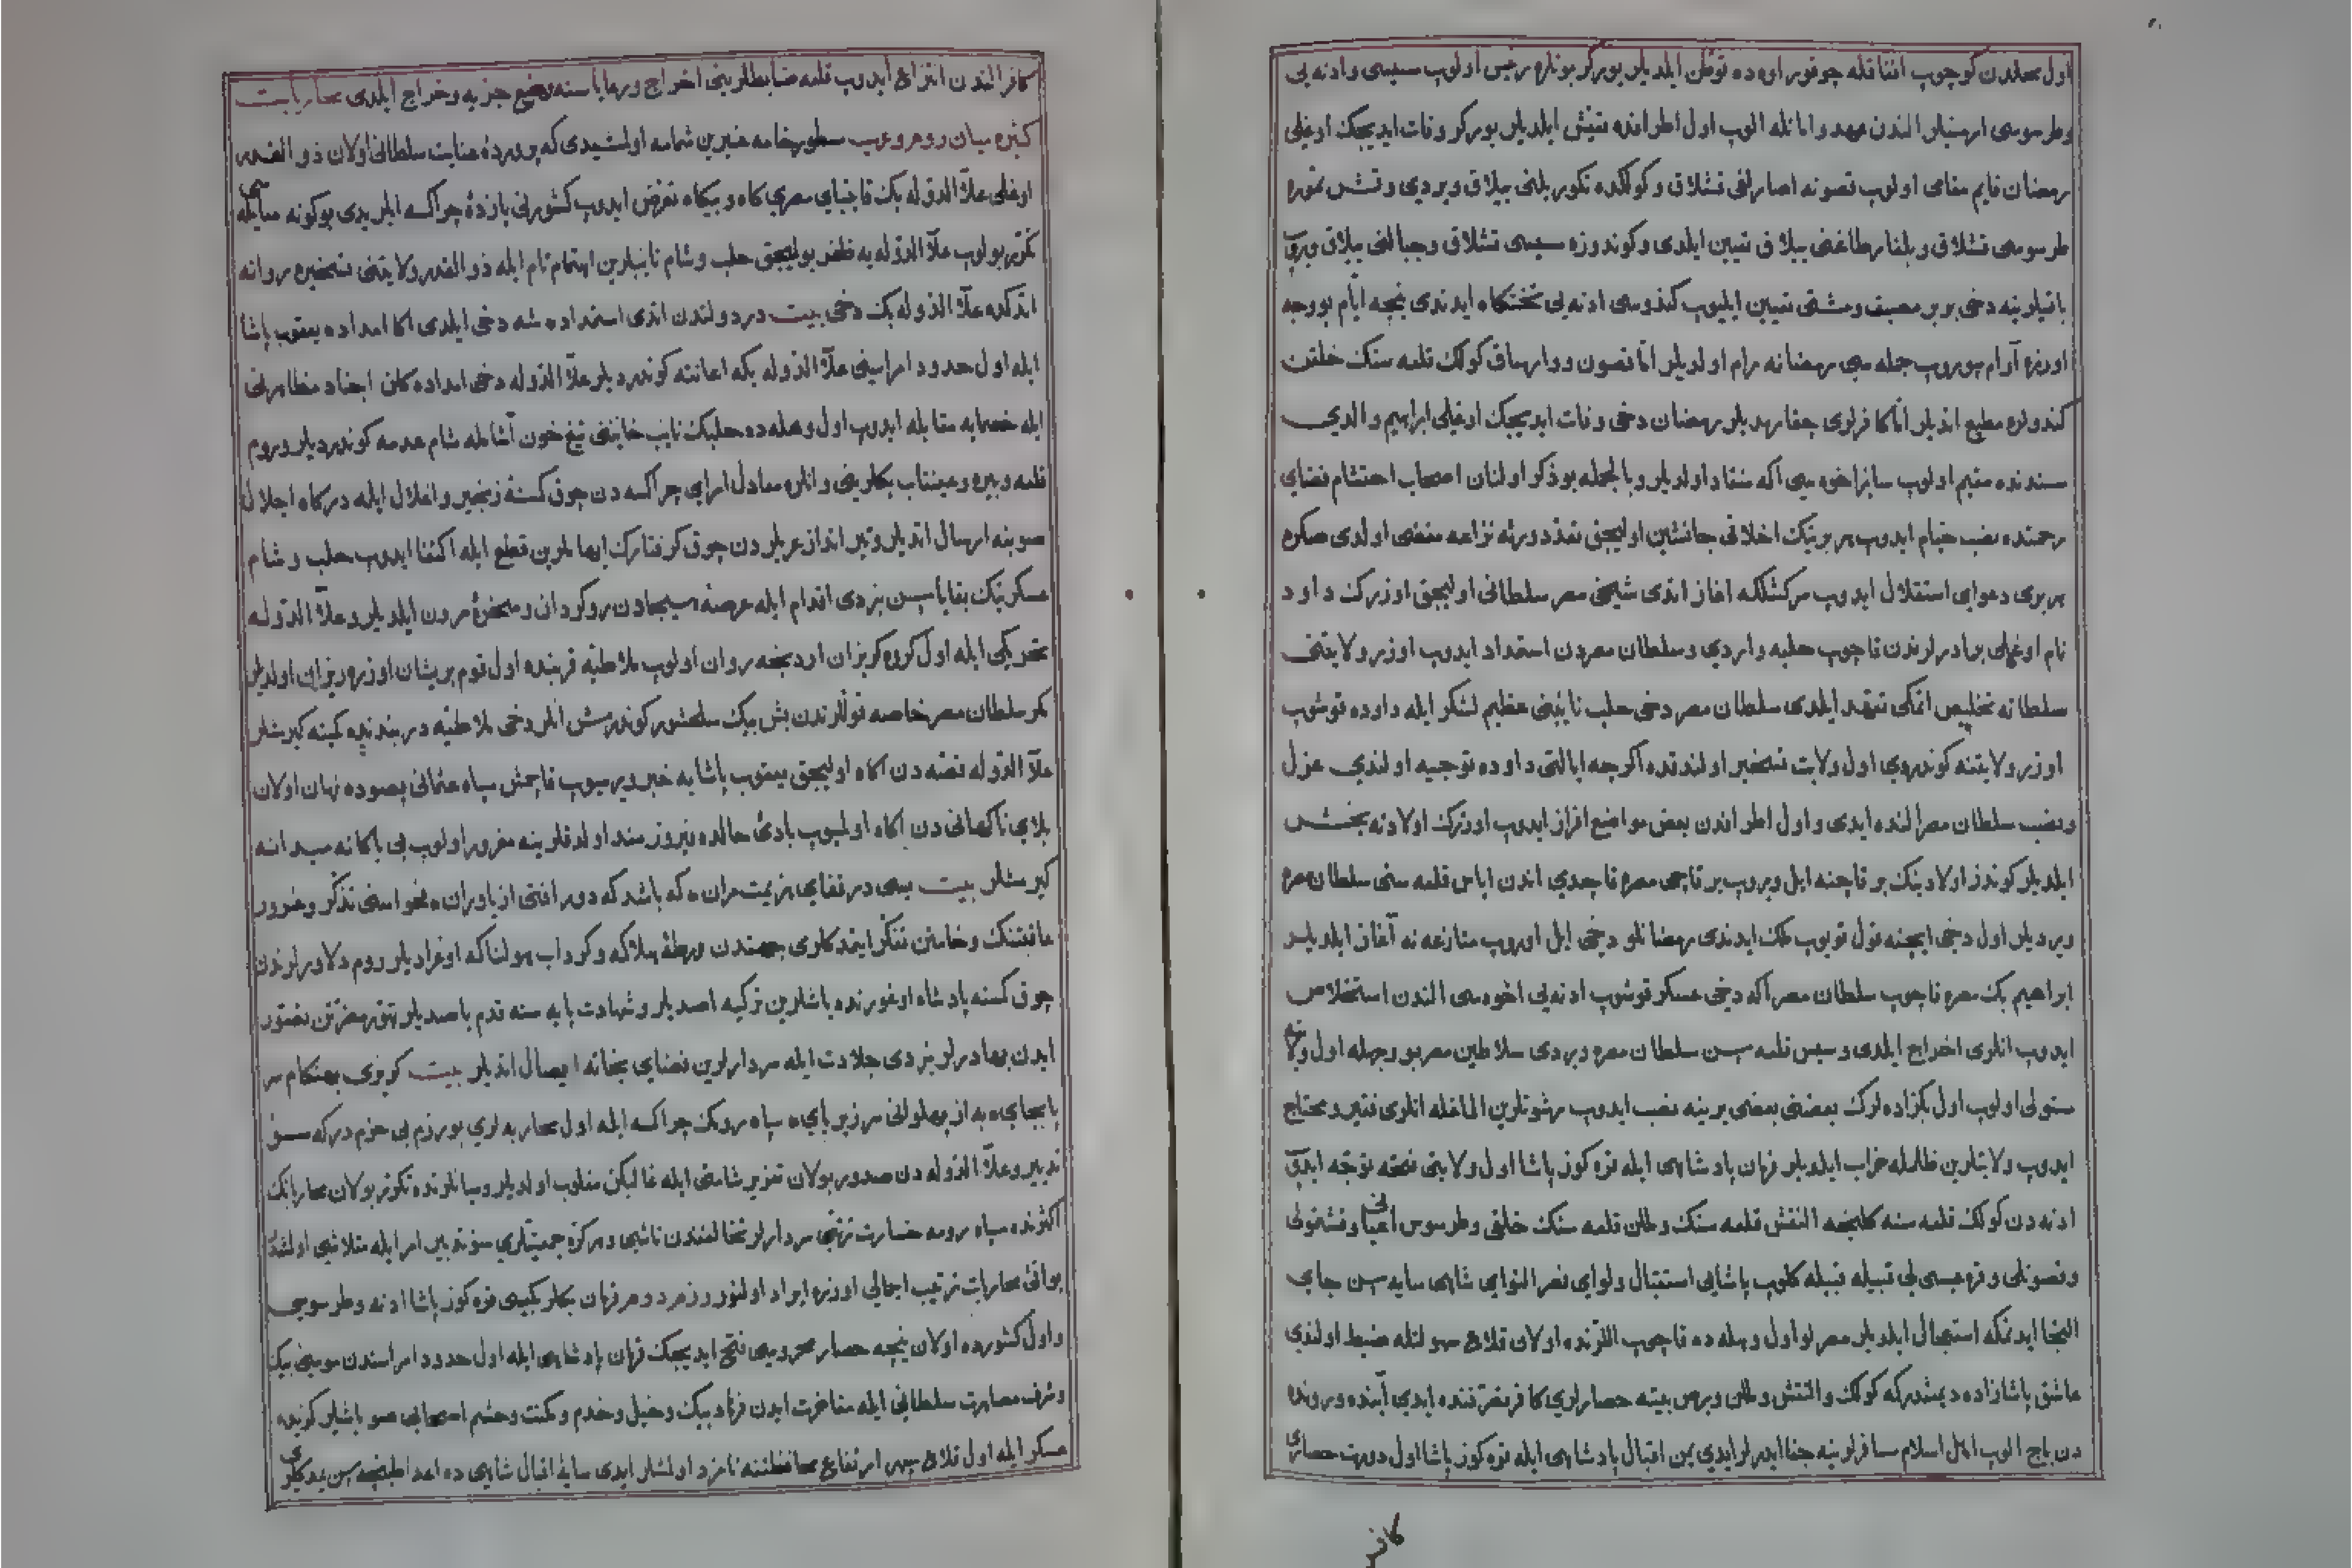 اول محلدن كوچوب اننا قله چوقور اوه ده توطن ايلديلر يوركر بونلره رئيس اولوب سيسى وادنه يى
وطرسوسى ارمنيلر الندن عهد وامانله الوب اول اطرافده تعيش ايلديلر يوركر وفات ايديجك اوغلى
رمضان قايم مقامى اولوب قصونه اصارلغى قشلاق وكولكده تكور بلنى ييلاق ويردى وقشتموره
طرسوسى قشلاق وبلغار طاغنى ييلاق تعيين ايلدى وكوندوزه سيسى قشلاق وجبالنى ييلاق ويروب
باقيلرينه دخى برر مصيف ومشتى تعيين ايليوب كندوسى ادنه يى تختكاه ايدندى نيجه ايام بو وجه
اوزره آرام يوروب جمله سى رمضانه رام اولديلر اما قصون ووارساق كولك قلعه سنك خلقن
كندولره مطيع اتديلر اما كافرلرى چقارمديلر رمضان دخى وفات ايديجك اوغلى ابراهيم والدى
مسندنده مقيم اولوب ساير اخوه سى اكه منقاد اولديلر وبالجمله بو ذكر اولنان اصحاب احتشام فضاى
رحمتده نصب خيام ايدوب هر برينك اخلافى جانشين اوليجق تعدد ورثه نزاعه مفضى اولدى صكره
هر برى دعواى استقلال ايدوب سركشلكه اغاز اتدى شيخى مصر سلطانى اوليجق اوزرك داود
نام اوغلى برادرلرندن قاچوب حلبه واردى وسلطان مصردن استمداد ايدوب اوزر ولايتنى
سلطانه تخليص اتمكى تعهد ايلدى سلطان مصر دخى حلب نايبنى عظيم لشكر ايله داوده قوشوب
اوزر ولايتنه كوندردى اول ولايت تسخير اولندقده اكرچه ايالتى داوده توجيه اولندى عزل
ونصب سلطان مصر النده ايدى واول اطرافدن بعض مواضع افراز ايدوب اوزرك اولادنه بخش
ايلديلر كوندز اولادينك بر قاچنه ايل ويروب بر قاچى مصره قاچدى اندن اياس قلعه سنى سلطان مصره
ويرديلر اول دخى ايچنه قول قويوب ملك ايدندى رمضانلو دخى ايل اوروب منازعه نه آغاز ايلديلر
ابراهيم بك مصره قاچوب سلطان مصر اكه دخى عسكر قوشوب ادنه يى اخوه سى الندن استخلاص
ايدوب انلرى اخراج ايلدى وسيس قلعه سن سلطان مصره ويردى سلاطين مصر بو وجهله اول ولايته
مستولى اولوب اول بكزاده لرك بعضنى بعضى يرينه نصب ايدوب رشوتلرين المغله انلرى فقير ومحتاج
ايدوب ولايتلرين ظلمله خراب ايلديلر فرمان پادشاهى ايله قره كوز پاشا اول ولايتى فتحه توجه ايدوب
ادنه دن كولك قلعه سنه كليجه النقش قلعه سنك وملن قلعه سنك خلقى وطرسوس اعيانى وقشتمورلى
وقصونلى وقره عيسى لى قبيله قبيله كلوب پاشايى استقبال ولواى نصر التواى شاهى سايه سن جاى
التجا ايدنمكه استعجال ايلديلر مصرلو اول وهله ده قاچوب اللرنده اولان قلاع سهولتله ضبط اولندى
عاشق پاشازاده ديمشدركه كولك والنقش وملن وبرص بيته حصارلرى كافر تصرفنده ايدى آينده وروونده
دن باج الوب اهل اسلام مسافرلرينه جفا ايدرلر ايدى يمن اقبال پادشاهى ايله قره كوز پاشا اول دورت حصارى
كافر
كافر الندن انتزاع ايدوب قلعه ضابطلرينى اخراج ورعاياسنه وضع جزيه وخراج ايلدى محاربات
كثيره ميان روم وعرب سطور خامه عنبرين شمامه اولمشيدى كه پرورده عنايت سلطانى اولان ذو القدر
اوغلى علاء الدوله بك قايتباى مصرى كاه وبيكاه تعرض ايدوب كشورنى يازده چراكسه ايلر يدى بوكونه معامله سى
تكرر بولوب علاء الدوله يه ظفر بوليجق حلب وشام نايبلرين اهتمام تام ايله ذو القدر ولايتنى تسخيره روانه
اتدكده علاء الدوله بك دخى بيت در دولتدن اتدى استمداد ه شه دخى ايلدى اكا امداد ه يعقوب پاشا
ايله اول حدود امراسنى علاء الدوله بكه اعانته كوندرديلر علاء الدوله دخى امداده كلن اجناد مظاهرتى
ايله خصمايه مقابله ايدوب اول وهله ده حلبك نايب خايننى تيغ خون آشامله شام عدمه كوندرديلر وروم
قلعه وبيره وعينتاب بكلرينى وانلره معادل امراى چراكسه دن چوق كسنه زنجير واغلال ايله دركاه اجلال
صوبنه ارسال اتديلر وتير انداز عربلردن چوق كرفتارك ابهاملرين قطع ايله اكتفا ايدوب حلب وشام
عسكرينك بقاياسن يزدى اقدام ايله عرصه هيجادن روكردان ومسخره مردن ايلديلر وعلاء الدوله
تحريكى ايله اول كروه كريزان اردنجه روان اولوب ملاطيه قربنده اول قوم پريشان اوزره ريزان اولديلر
مكر سلطان مصر خاصه قوللرندن بش بيك سلحشور كوندرمش انلر دخى ملاطيه دربندنده كمينه كيرمشلر
علاء الدوله قصه دن اكاه اوليجق يعقوب پاشايه خبر ويرميوب قاچمش سپاه عثمانى پصوده نهان اولان
بلاى ناكهانى دن اكاه اولميوب بادئ حالده فيروزمند اولدقلرينه مغرور اولوب بى باكانه ميدانه
كيرمشلر بيت بسى در قفاى هزيمت مران ه كه باشد كه دور افتى از ياوران ه فحواسنى تذكر وغرور
عاقبتنك وخامتن تفكر ايتمدكلرى جهتدن ورطه هلاكه وكرداب هولناكه اوغراديلر روم دلاورلرندن
چوق كسنه پادشاه اوغورنده باشلرين تركيه اصديلر وشهادت پايه سنه قدم باصديلر تهور مضرتن تصور
ايدن بهادرلر يزدى جلادت ايله سردارلرين فضاى نجاته ايصال اتديلر بيت كريزى بهنكام سر
بابجاى ه به از پهلوانى سر زير پاى ه سپاه رومك چراكسه ايله اول محاربه لرى بو رزم بى حزم دركه سوء
تدبير وعلاء الدوله دن صدور بولان تزوير شامتى ايله غالبكن مغلوب اولديلر وميانلرنده تكرر بولان محارباتك
اكثرنده سپاه رومه خسارت ترتبى سردارلر تخالفندن ناشى ومركزه جمعيتلرى سوء تدبير امرا ايله متلاشى اولمشدر
بواقئ محاربات ترتيب اجمالى اوزره ايراد اولنور در زمرد ومر فرمان بكلربكيسى قره كوز پاشا ادنه وطرسوسى
واول كشورده اولان نيجه حصار محروسى فتح ايديجك فرمان پادشاهى ايله اول حدود امراسندن موسى بيك
وشرف مصاهرت سلطانى ايله مفاخرت ايدن فرهاد بيك وخيل وخدم ومكنت وحشم اصحابى صو باشيلر كزيده
عسكر ايله اول قلاع سپهر ارتفاع محافظتنه نامزد اولمشلر ايدى سايه اقبال شاهى ده اعدا طپنچه سن يمدكلرى